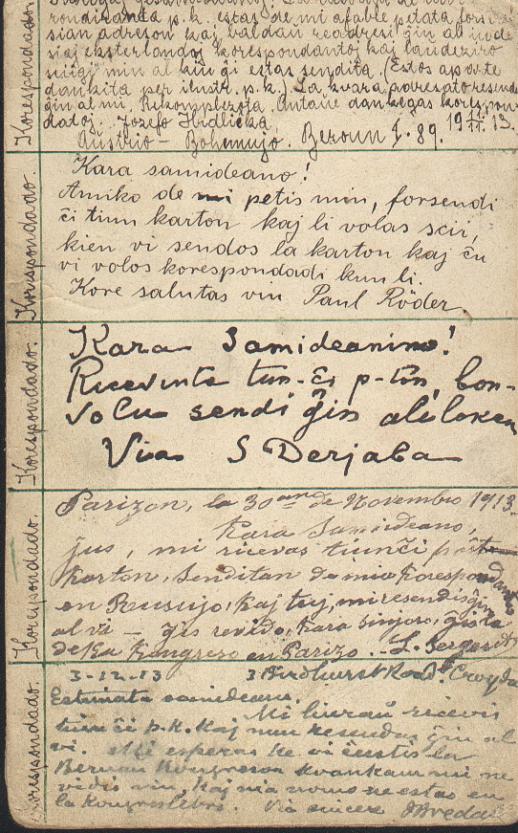 rondiranta p.k. estas de mi afable petata forsen
sian adreson kaj baldaŭ readresi ĝin al
siaj eksterlandaj korespondantoj kaj
min al kiu ĝi estas sendita. (Estos aparte
dankita per ilustr. p.k.) La kvara resende
ĝin al mi. Antaŭe dankegas korespon-
datoj. Jozefo Hrdlička,
Aŭstrio - Bohemujo. Beroun I. 89. 19 11/11 13.
Korespondado.
Kara samideano!
Amiko de mi petis min, forsendi
ĉi tiun karton kaj li volas scii,
kien vi sendos la karton kaj ĉu
vi volos korespondadi kun li.
Kore salutas vin Paul Röder.
Korespondado.
Kara Samideanino!
Ricevinte tiun-ĉi p-ton, bon-
volu sendi ĝin aliloken
Via S Derjaba
Korespondado.
Parizon, la 30an de Novembro 1913.
Kara Samideano,
Ĵus, mi ricevas tiunĉi poŝt
karton, senditan de mia korespondanto
en Rusujo, kaj tuj, mi resendis ĝin
al vi - ĝis revido, kara sinjoro, ĝis la
deka kongreso en Parizo. -
Korespondado.
3-12-13 3 Birdhurst Road. Croydon
Estimata samideano.
Mi ĵus ricevis
tiun ĉi p.k. kaj nun resendas ĝin al
vi. Mi esperas ke vi ĉeestis la
Bernan Kongreson kvankam mi ne
vidis vin, kaj via nomo ne estas en
la kongreslibro. Via sincere
Korespondado.